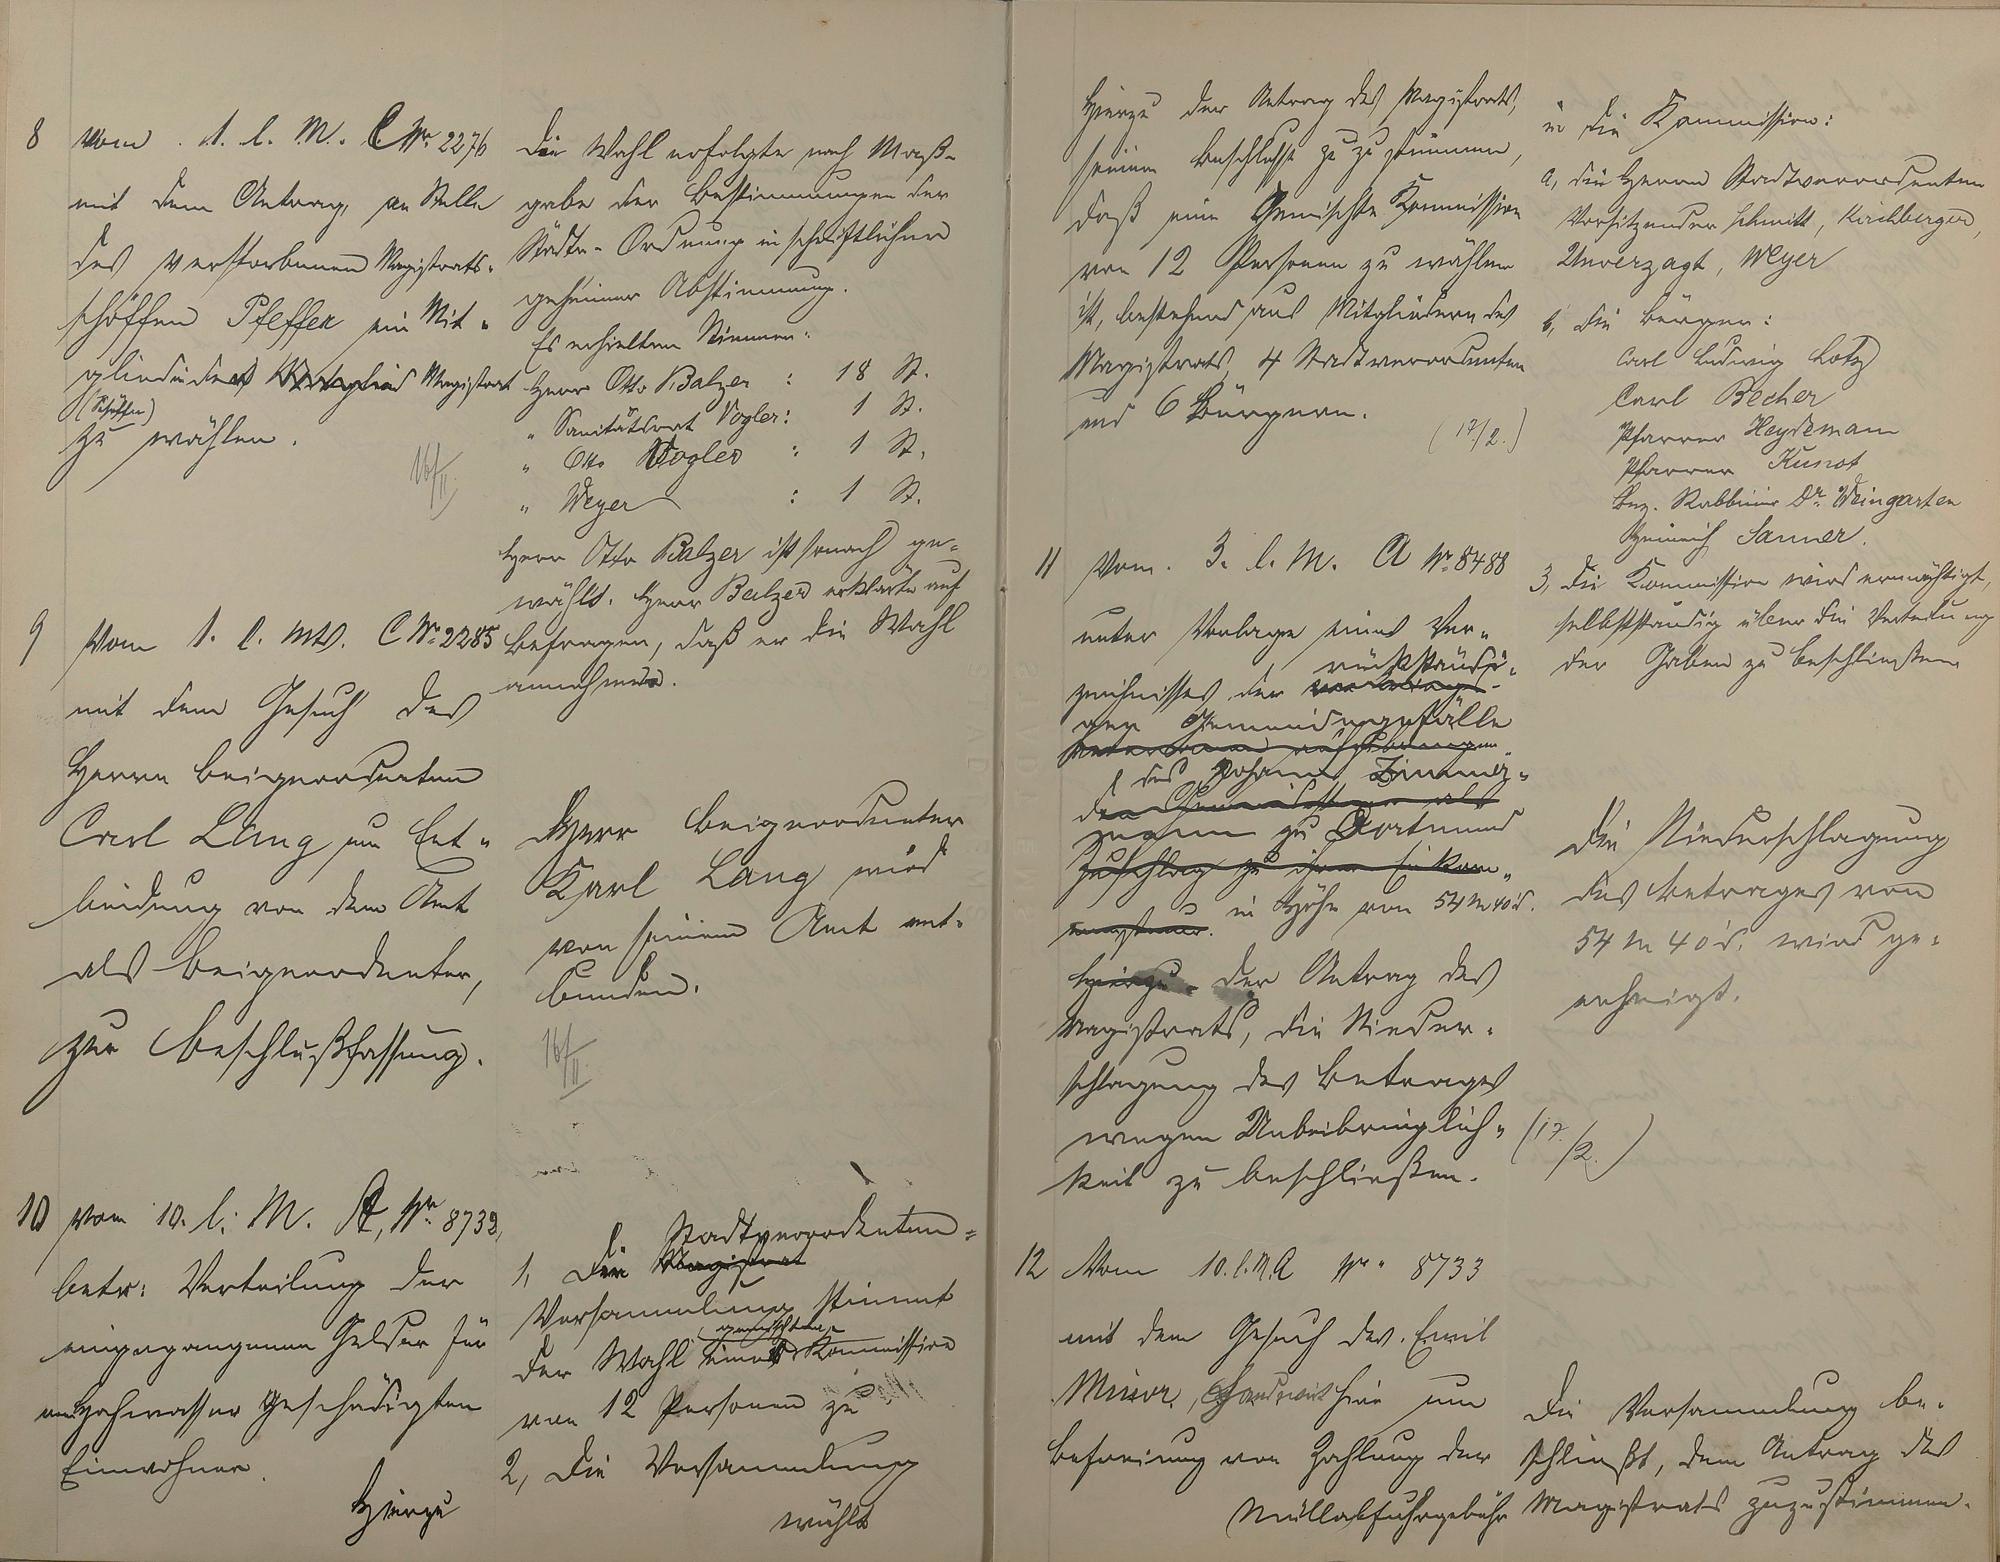 8 Vom 1. l. M. C Nr. 2276
mit dem Antrag, an Stelle
des verstorbenen Magistrats-
schöffen Pfeffer ein Mit-
glied des Magistrat
(Schöffen)
zu wählen.
16/II.
Die Wahl erfolgte nach Maß-
gabe der Bestimmungen der
Städte-Ordnung in schriftlicher
geheimer Abstimmung.
Es erhielten Stimmen:
Herr Otto Balzer : 18 St.
" Sanitätsrat Vogler : 1 St.
" Otto Vogler : 1 St.
" Weyer : 1 St.
Herr Otto Balzer ist sonach ge-
wählt. Herr Balzer erklärte auf
Befragen, daß er die Wahl
annehme.
9 Vom 1. l. Mts. C Nr. 2285
mit dem Gesuch des
Herrn Beigeordneten
Carl Lang um Ent-
bindung von dem Amt
als Beigeordneter,
zur Beschlußfassung.
Herr Beigeordneter
Karl Lang wird
von seinem Amt ent-
bunden.
16/II.
10 Vom 10. l. M. A, Nr. 8732,
betr: Verteilung der
eingegangenen Gelder für
Hochwasser Geschädigten
Einwohner.
Hierzu
1, Die Stadtverordneten-
Magistrat
Versammlung stimmt
gemischten
der Wahl einer Kommission
von 12 Personen zu
2, Die Versammlung
wählt
Hierzu der Antrag des Magistrats,
seinem Beschlusse zuzustimmen,
daß eine Gemischte Kommission
von 12 Personen zu wählen
ist, bestehend aus Mitgliedern des
Magistrats, 4 Stadtverordneten
und 6 Bürgern.
(17/2.)
in die Kommission:
a, die Herren Stadtverordneten
Vorsitzender Schmitt, Kirchberger,
Unverzagt, Weyer
b, die Bürger:
Carl Ludwig Lotz
Carl Becher
Pfarrer Heydemann
Pfarrer Kunot
Bez. Rabbiner Dr. Weingarten
Heinrich Sanner.
3, Die Kommission wird ermächtigt,
selbstständig über die Verteilung
der Gaben zu beschließen
11 Vom 3. l. M. A Nr. 8488
unter Vorlage eines Ver-
rückständi-
zeichnisses der
gen Gemeindegefälle
des Johann Zimmer-
zu Dortmund
Zuschlag zu ihrer Einkom-
mensteuer. in Höhe von 54 M 40 d.
Hierzu der Antrag des
Magistrats, die Nieder-
schlagung des Betrages
wegen Unbeibringlich-
keit zu beschließen.
(17./2.)
Die Niederschlagung
des Betrages von
54 M 40 d. wird ge-
nehmigt.
12 Vom 10. l. M. A Nr. 8733
mit dem Gesuch des Emil
Minor, Landwirt hier um
Befreiung von Zahlung der
Müllabfuhrgebühr
Die Versammlung be-
schließt, dem Antrag des
Magistrats zuzustimmen.